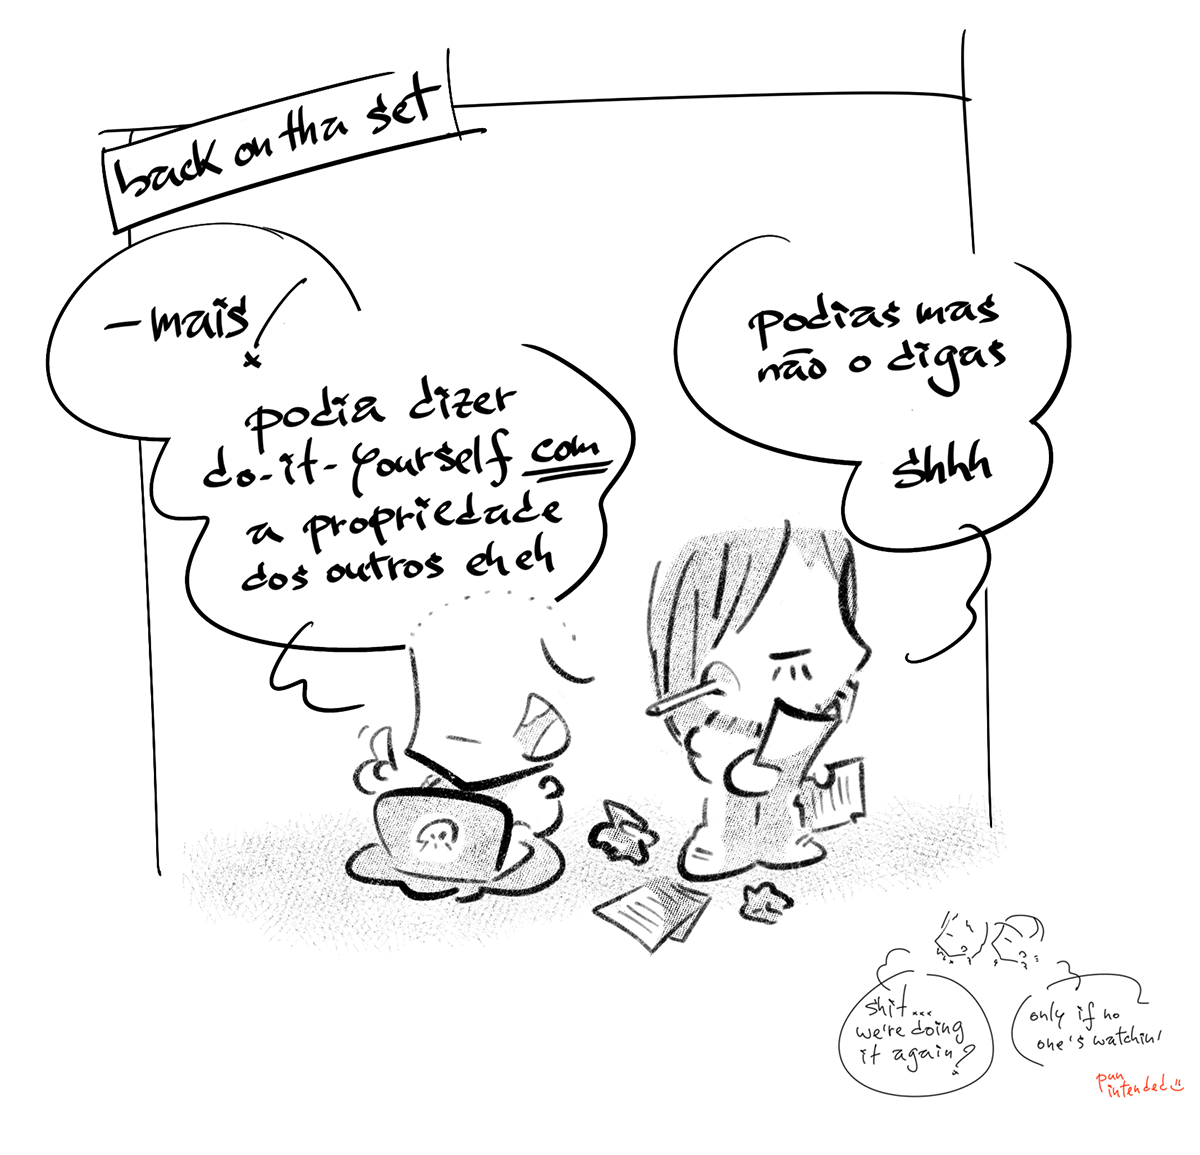 back on tha set
—mais!
podia dizer
do-it-yourself com
a propriedade
dos outros eh eh
podias mas
não o digas
shhh
shit...
we're doing
it again?
only if no
one's watchin'
pun
intended